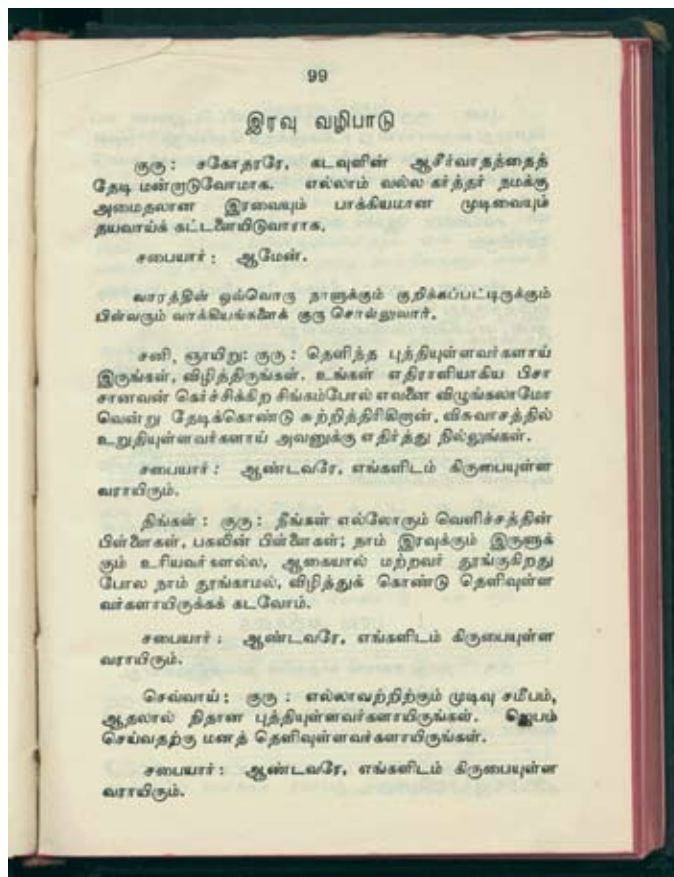 99
இரவு வழிபாடு
குரு : சகோதரரே, கடவுளின் ஆசீர்வாதத்தைத்
தேடி மன்றாடுவோமாக. எல்லாம் வல்ல கர்த்தர் நமக்கு
அமைதலான இரவையும் பாக்கியமான முடிவையும்
தயவாய்க் கட்டளையிடுவாராக.
சபையார் : ஆமேன்.
வாரத்தின் ஒவ்வொரு நாளுக்கும் குறிக்கப்பட்டிருக்கும்
பின்வரும் வாக்கியங்களைக் குரு சொல்லுவார்.
சனி, ஞாயிறு: குரு : தெளிந்த புத்தியுள்ளவர்களாய்
இருங்கள், விழித்திருங்கள். உங்கள் எதிராளியாகிய பிசா
சானவன் கெர்ச்சிக்கிற சிங்கம்போல் எவனை விழுங்கலாமோ
வென்று தேடிக்கொண்டு சுற்றித்திரிகிறான். விசுவாசத்தில்
உறுதியுள்ளவர்களாய் அவனுக்கு எதிர்த்து நில்லுங்கள்.
சபையார் : ஆண்டவரே, எங்களிடம் கிருபையுள்ள
வராயிரும்.
திங்கள் : குரு : நீங்கள் எல்லோரும் வெளிச்சத்தின்
பிள்ளைகள், பகலின் பிள்ளைகள்; நாம் இரவுக்கும் இருளுக்
கும் உரியவர்களல்ல, ஆகையால் மற்றவர் தூங்குகிறது
போல நாம் தூங்காமல், விழித்துக் கொண்டு தெளிவுள்ள
வர்களாயிருக்கக் கடவோம்.
சபையார் : ஆண்டவரே, எங்களிடம் கிருபையுள்ள
வராயிரும்.
செவ்வாய் : குரு : எல்லாவற்றிற்கும் முடிவு சமீபம்,
ஆதலால் நிதான புத்தியுள்ளவர்களாயிருங்கள். ஜெபம்
செய்வதற்கு மனத் தெளிவுள்ளவர்களாயிருங்கள்.
சபையார் : ஆண்டவரே, எங்களிடம் கிருபையுள்ள
வராயிரும்.